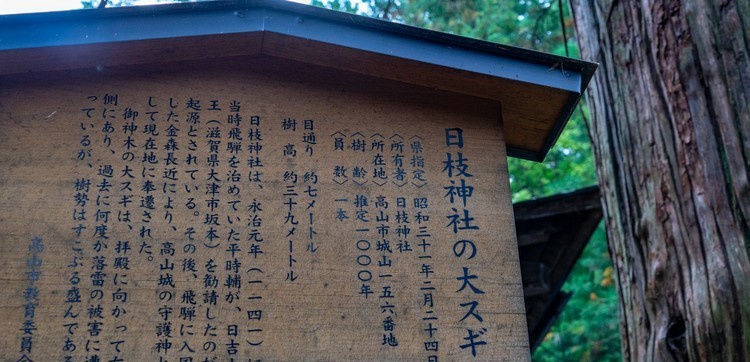 日枝神社の大スギ
〈県指定〉昭和三十一年二月二十四日
〈所有者〉日枝神社
〈所在地〉高山市城山一五六番地
〈樹　齢〉推定一〇〇〇年
〈員　数〉一本
目通り　約七メートル
樹　高　約三十九メートル
日枝神社は、永治元年（一一四一）に
当時飛騨を治めていた平時輔が、日吉
王（滋賀県大津市坂本）を勧請したのが
起源とされている。その後、飛騨に入国
した金森長近により、高山城の守護神と
して現在地に奉遷された。
御神木の大スギは、拝殿に向かって右
側にあり、過去に何度か落雷の被害に遭
っているが、樹勢はすこぶる盛んである
高山市教育委員会